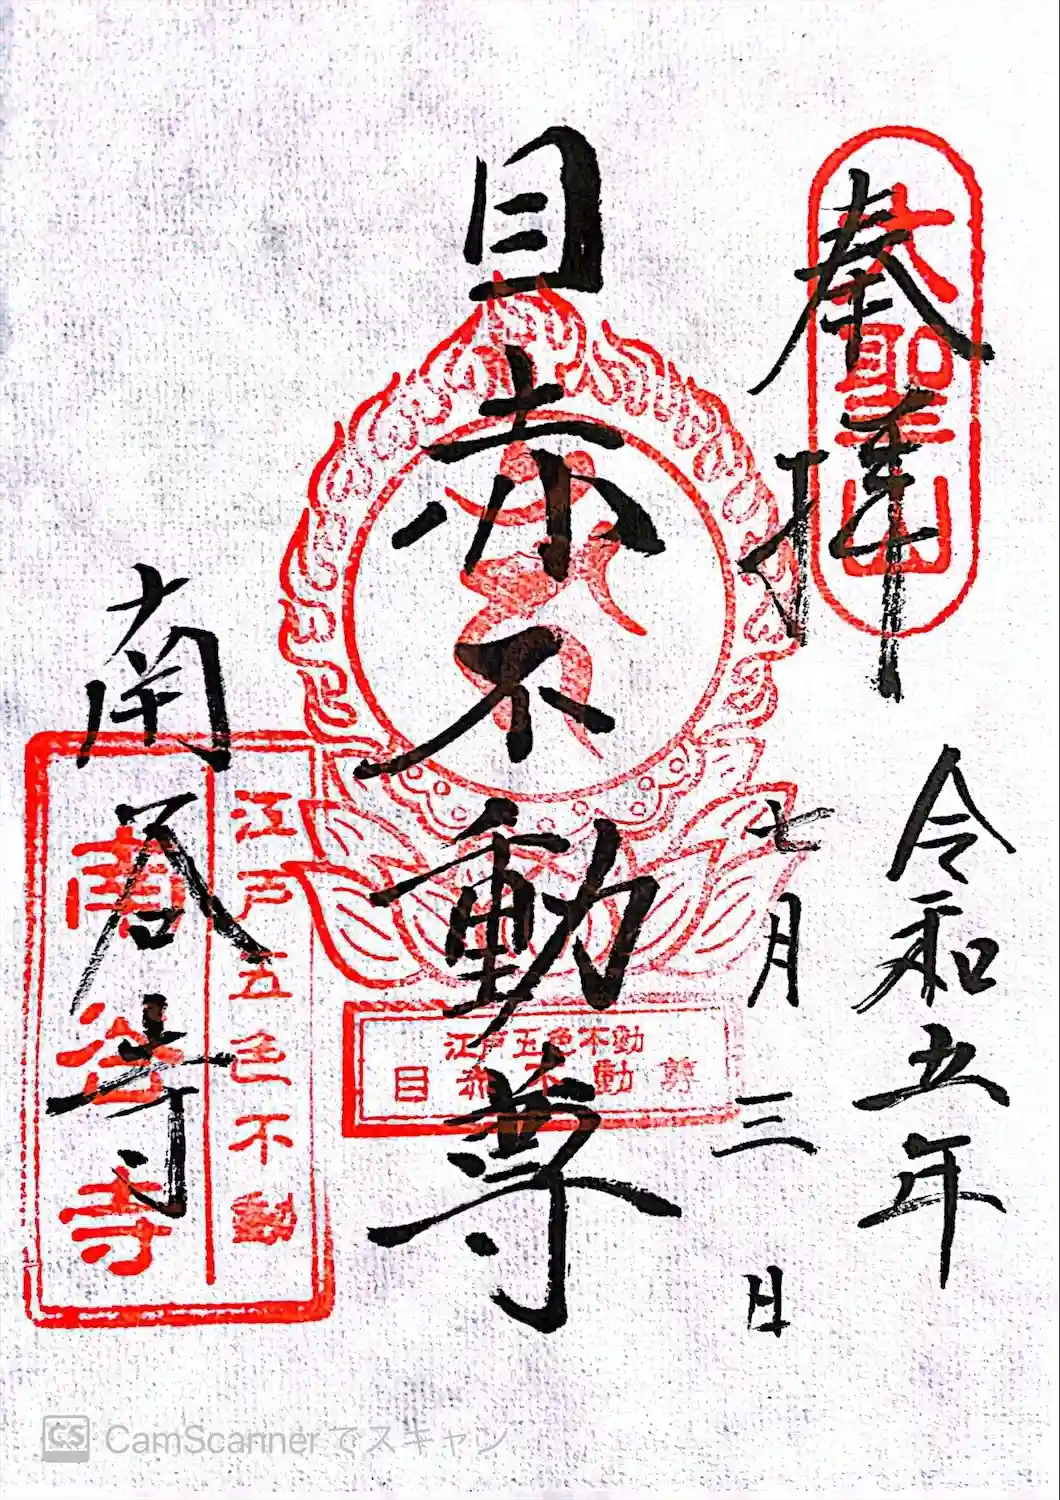 奉拝
大聖山
令和五年
七月三日
目赤不動尊
江戸五色不動
目赤不動尊
南谷寺
江戸五色不動
南谷寺
CS CamScannerでスキャン